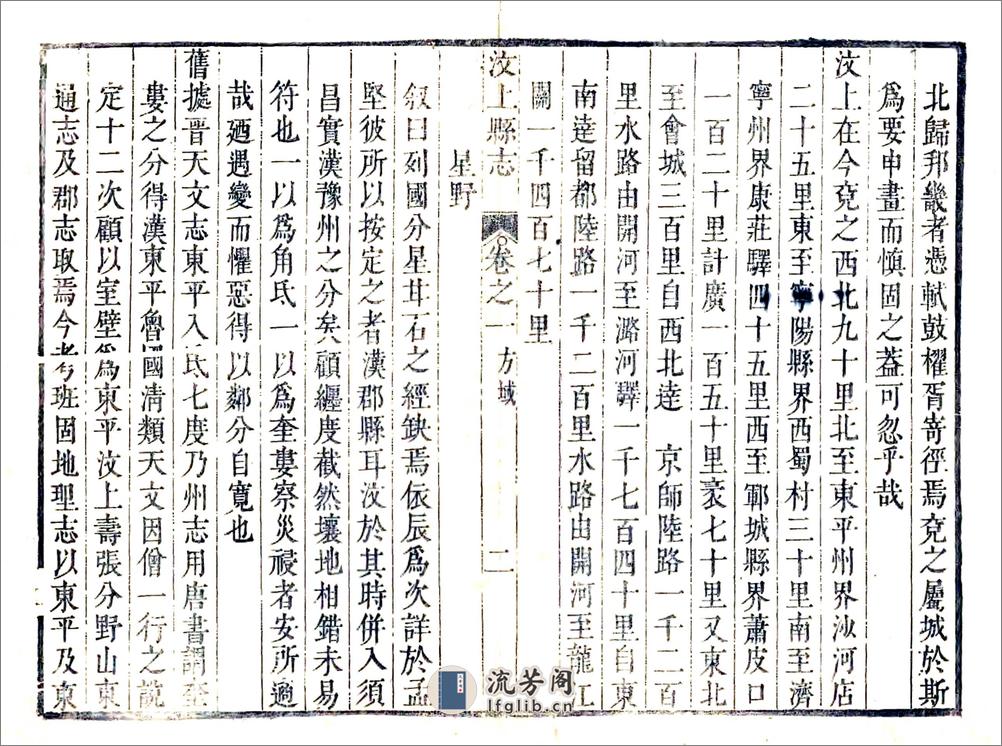 北歸邦畿者憑軾鼓櫂胥寄徑焉兗之屬城於斯
爲要申畫而慎固之葢可忽乎哉
汶上在今兗之西北九十里北至東平州界沙河店
二十五里東至寧陽縣界西蜀村三十里南至濟
寧州界康莊驛四十五里西至鄆城縣界蕭皮口
一百二十里計廣一百五十里袤七十里又東北
至會城三百里自西北達　京師陸路一千二百
里水路由開河至潞河驛一千七百四十里自東
南達留都陸路一千二百里水路由開河至龍江
關一千四百七十里
汶上縣志 卷之一 方域 二
星野
叙曰列國分星甘石之經缺焉依辰爲次詳於孟
堅彼所以按定之者漢郡縣耳汶於其時併入須
昌實漢豫州之分矣顧纏度截然壤地相錯未易
符也一以爲角氐一以爲奎婁察災祲者安所適
哉廼遇變而懼惡得以鄰分自寬也
舊據晉天文志東平入氐七度乃州志用唐書謂奎
婁之分得漢東平魯國淸類天文因僧一行之說
定十二次顧以室壁爲東平汶上壽張分野山東
通志及郡志取焉今考班固地理志以東平及東
流芳阁
lfglib.cn